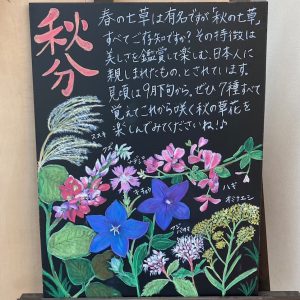 秋分
春の七草は有名ですが「秋の七草」
すべてご存知ですか？その特徴は
美しさを鑑賞して楽しむ、日本人に
親しまれたもの、とされています。
見頃は9月下旬から、ぜひ7種すべて
覚えてこれから咲く秋の草花を
楽しんでみてくださいね！♪
ススキ
クズ
キキョウ
ハギ
オミナエシ
フジバカマ